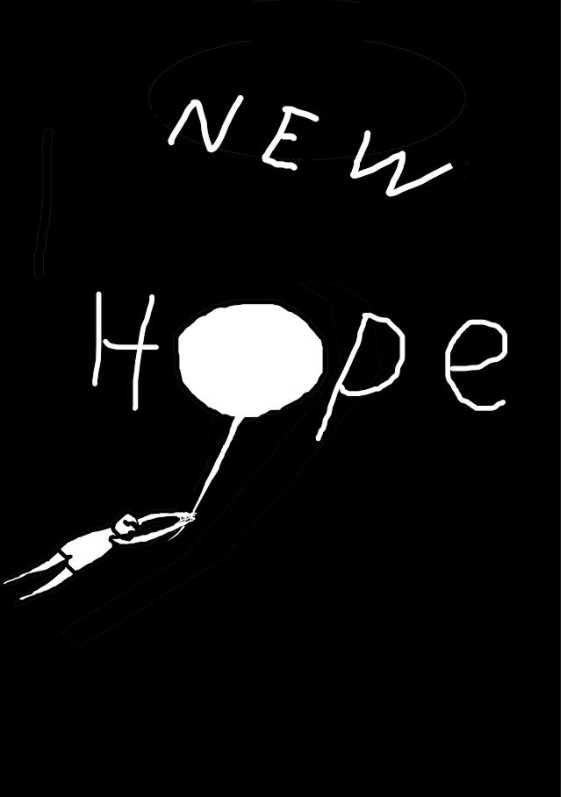 NEW
HOpe